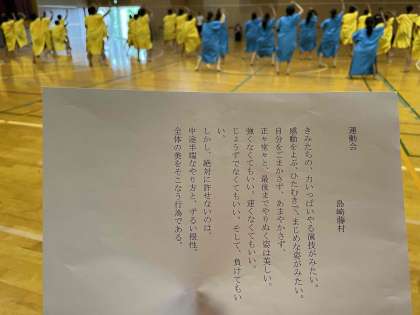 運動会
島崎藤村
きみたちの、力いっぱいやる演技がみたい。
感動をよぶ、ひたむきで、まじめな姿がみたい。
自分をごまかさず、あまやかさず、
正々堂々と、最後までやりぬく姿は美しい。
強くなくてもいい、速くなくてもいい。
じょうずでなくてもいい、そして、負けてもい
い。
しかし、絶対に許せないのは、
中途半端なやり方と、ずるい根性。
全体の美をそこなう行為である。